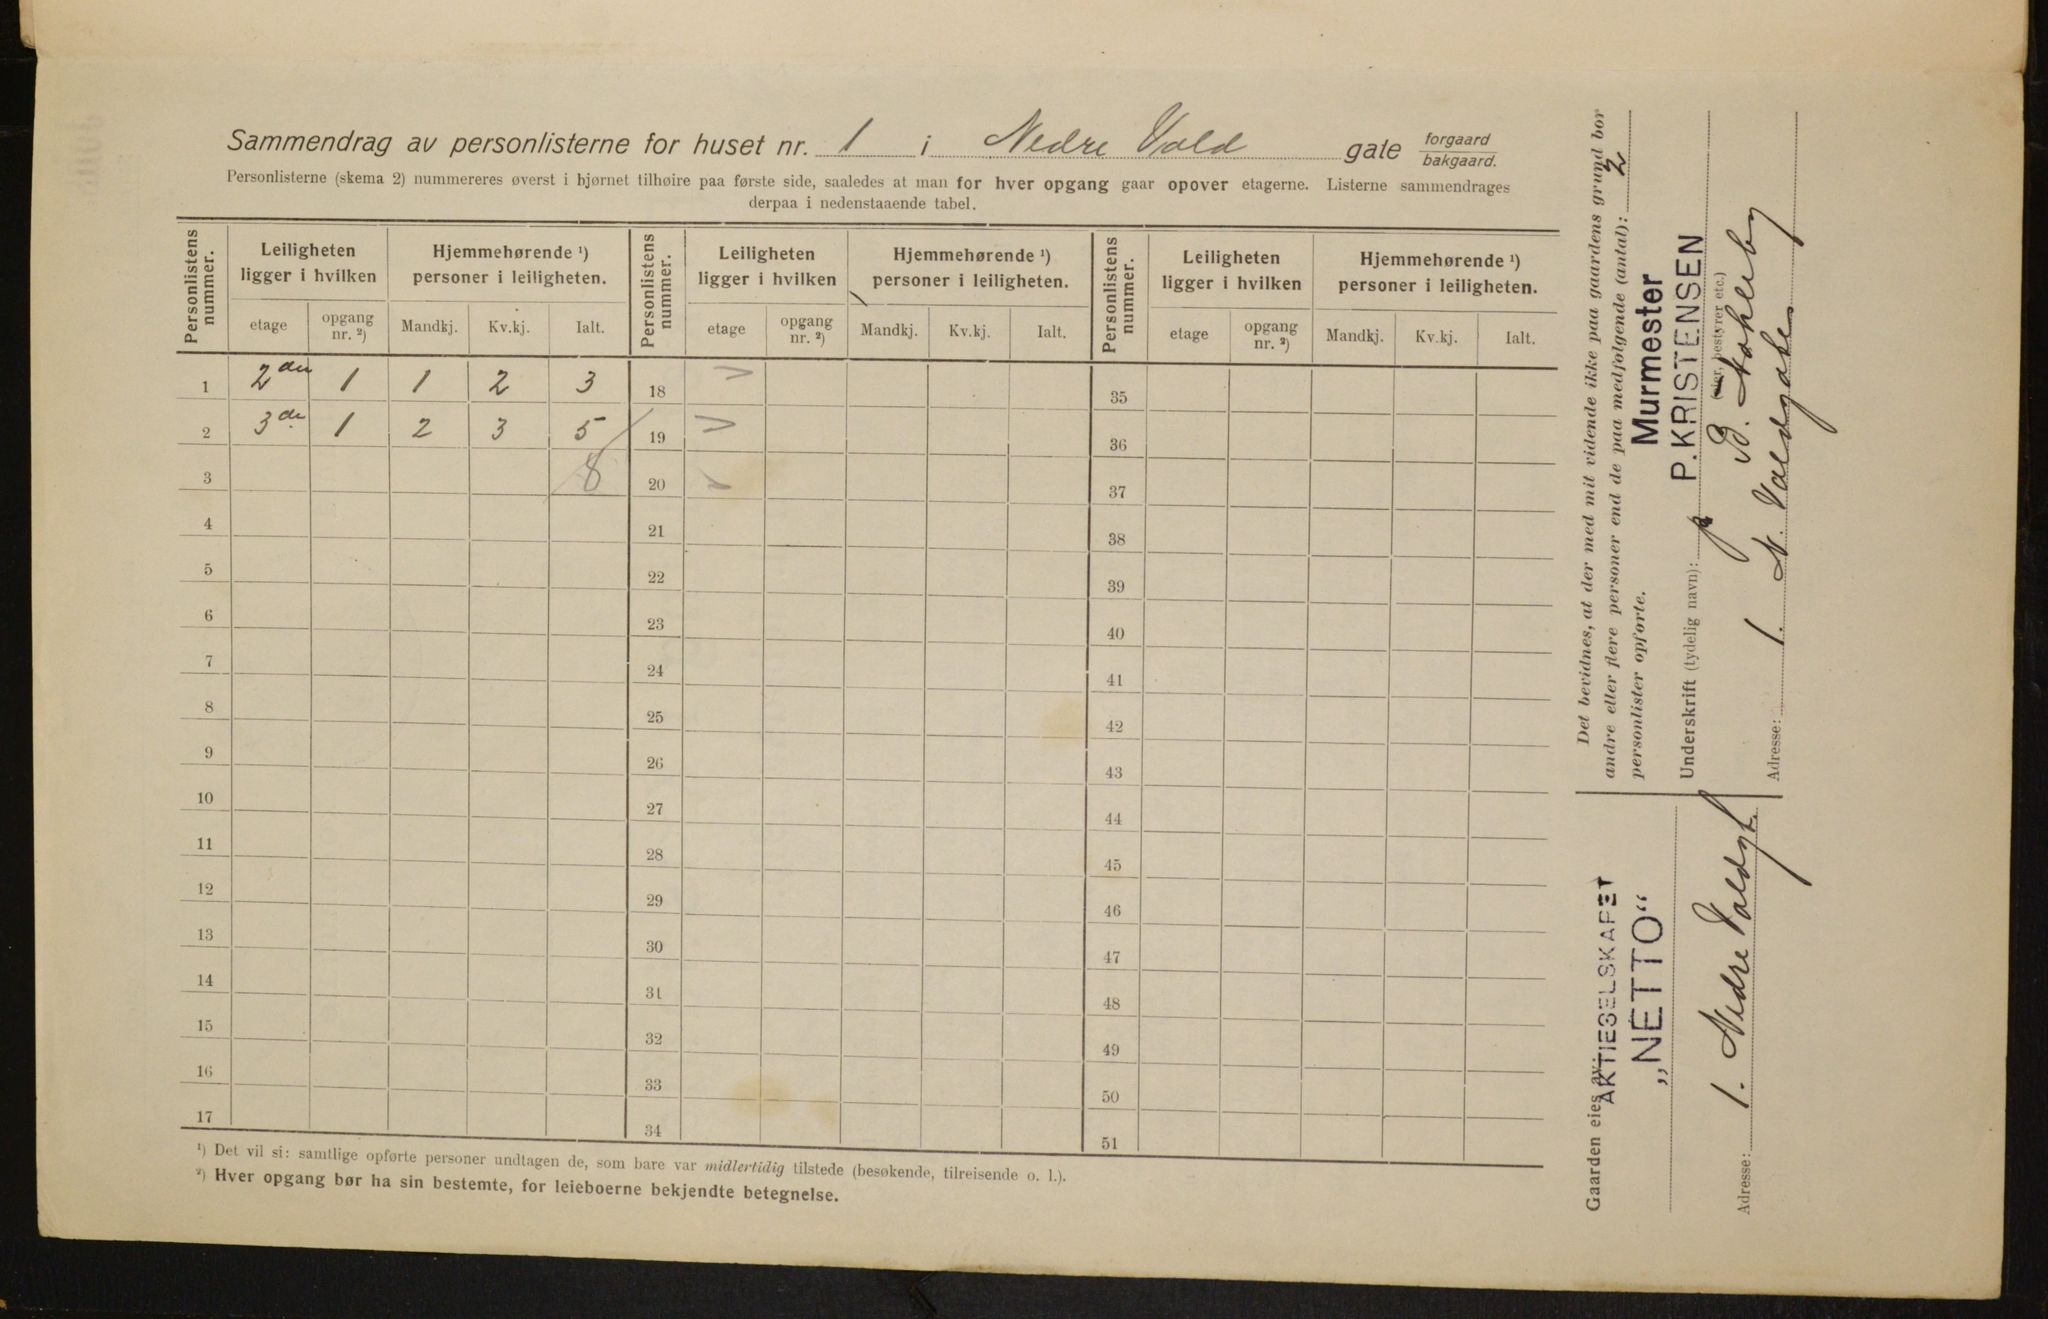 Sammendrag av personlisterne for huset nr. 1 i Nedre Vold gate forgaard / bakgaard.
Personlisterne (skema 2) nummereres øverst i hjørnet tilhøire paa første side, saaledes at man for hver opgang gaar opover etagerne. Listerne sammendrages
derpaa i nedenstaaende tabel.
Personlistens nummer. Leiligheten ligger i hvilken Hjemmehørende ¹) personer i leiligheten. Personlistens nummer. Leiligheten ligger i hvilken Hjemmehørende ¹) personer i leiligheten. Personlistens nummer. Leiligheten ligger i hvilken Hjemmehørende ¹) personer i leiligheten.
etage opgang nr. ²) Mandkj. Kv.kj. Ialt. etage opgang nr. ²) Mandkj. Kv.kj. Ialt. etage opgang nr. ²) Mandkj. Kv.kj. Ialt.
1 2den 1 1 2 3 18 35
2 3de 1 2 3 5 19 36
3 8 20 37
4 21 38
5 22 39
6 23 40
7 24 41
8 25 42
9 26 43
10 27 44
11 28 45
12 29 46
13 30 47
14 31 48
15 32 49
16 33 50
17 34 51
¹) Det vil si: samtlige opførte personer undtagen de, som bare var midlertidig tilstede (besøkende, tilreisende o. l.).
²) Hver opgang bør ha sin bestemte, for leieboerne bekjendte betegnelse.
Det bevidnes, at der med mit vidende ikke paa gaardens grund bor
andre eller flere personer end de paa medfølgende (antal): 2
personlister opførte.
Murmester
P. KRISTENSEN
Underskrift (tydelig navn): B.
(eier, bestyrer etc.)
Adresse: 1. N. Voldgate
Gaarden eies av: AKTIESELSKAPET
„NETTO“
Adresse: 1. Nedre Voldgt.